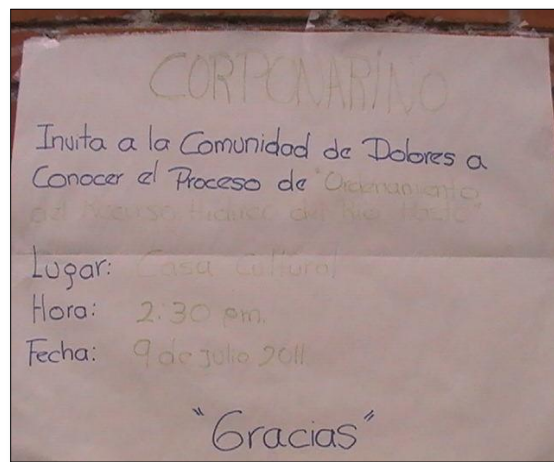 CORPONARIÑO
Invita a la Comunidad de Dolores a
Conocer el Proceso de "Ordenamiento
del Recurso Hídrico del Río Pasto"
Lugar: Casa Cultural
Hora: 2:30 pm.
Fecha: 9 de julio 2011.
"Gracias"